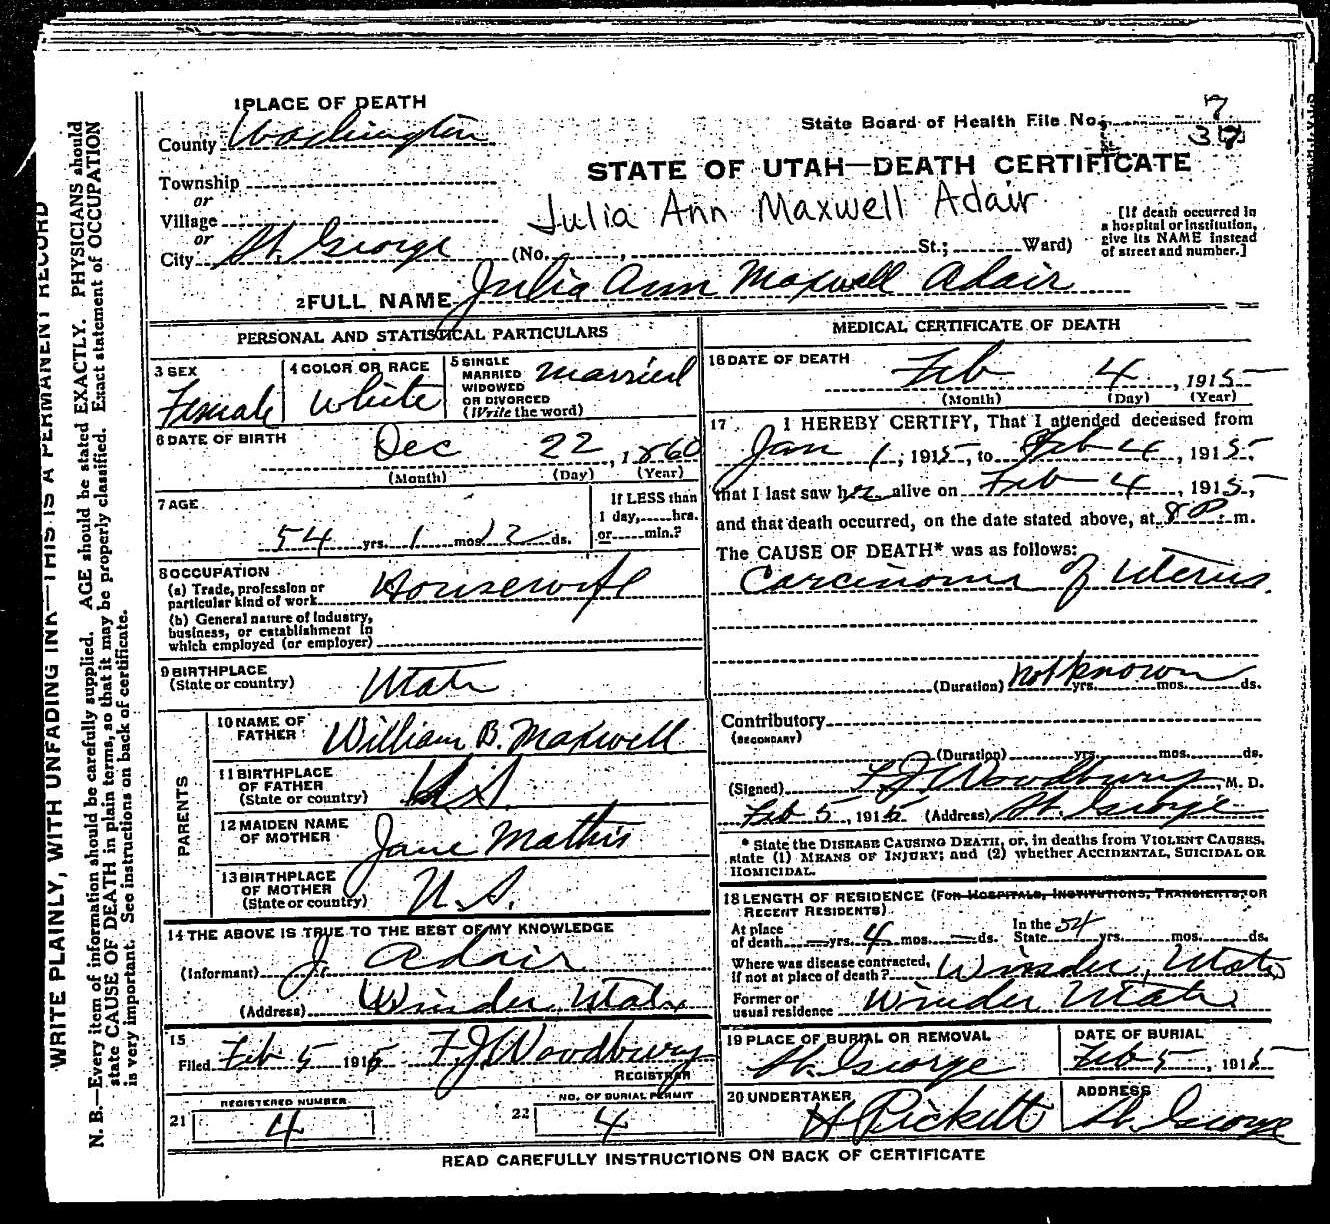 1 PLACE OF DEATH
County Washington
Township
or
Village
or
City St. George
State Board of Health File No. 7
37
STATE OF UTAH—DEATH CERTIFICATE
Julia Ann Maxwell Adair
(No. , St.; Ward)
[If death occurred in
a hospital or institution,
give its NAME instead
of street and number.]
2 FULL NAME Julia Ann Maxwell Adair
PERSONAL AND STATISTICAL PARTICULARS
3 SEX
Female
4 COLOR OR RACE
White
5 SINGLE
MARRIED
WIDOWED
OR DIVORCED
(Write the word)
Married
6 DATE OF BIRTH
Dec 22, 1860
(Month) (Day) (Year)
7 AGE
54 yrs. 1 mos. 12 ds.
If LESS than
1 day, hrs.
or min.?
8 OCCUPATION
(a) Trade, profession or
particular kind of work Housewife
(b) General nature of industry,
business, or establishment in
which employed (or employer)
9 BIRTHPLACE
(State or country) Utah
PARENTS
10 NAME OF
FATHER William B. Maxwell
11 BIRTHPLACE
OF FATHER
(State or country) U.S.
12 MAIDEN NAME
OF MOTHER Jane Mathis
13 BIRTHPLACE
OF MOTHER
(State or country) U.S.
14 THE ABOVE IS TRUE TO THE BEST OF MY KNOWLEDGE
(Informant) J. Adair
(Address) Winder, Utah
15
Filed Feb 5 1915 F.J. Woodbury
REGISTRAR
21 REGISTERED NUMBER
4
22 NO. OF BURIAL PERMIT
4
MEDICAL CERTIFICATE OF DEATH
16 DATE OF DEATH
Feb 4, 1915
(Month) (Day) (Year)
17 I HEREBY CERTIFY, That I attended deceased from
Jan 1, 1915, to Feb 4, 1915,
that I last saw her alive on Feb 4, 1915,
and that death occurred, on the date stated above, at 8 P m.
The CAUSE OF DEATH* was as follows:
Carcinoma of Uterus.
(Duration) not known yrs. mos. ds.
Contributory
(SECONDARY)
(Duration) yrs. mos. ds.
(Signed) F.J. Woodbury, M. D.
Feb 5, 1915 (Address) St. George
* State the DISEASE CAUSING DEATH, or, in deaths from VIOLENT CAUSES,
state (1) MEANS OF INJURY; and (2) whether ACCIDENTAL, SUICIDAL OR
HOMICIDAL.
18 LENGTH OF RESIDENCE (FOR HOSPITALS, INSTITUTIONS, TRANSIENTS, OR
RECENT RESIDENTS).
At place
of death — yrs. 4 mos. — ds.
In the
State 54 yrs. mos. ds.
Where was disease contracted,
if not at place of death? Winder, Utah
Former or
usual residence Winder Utah
19 PLACE OF BURIAL OR REMOVAL
St. George
DATE OF BURIAL
Feb 5, 1915
20 UNDERTAKER
H Pickett
ADDRESS
St. George
READ CAREFULLY INSTRUCTIONS ON BACK OF CERTIFICATE
WRITE PLAINLY, WITH UNFADING INK—THIS IS A PERMANENT RECORD
N. B.—Every item of information should be carefully supplied. AGE should be stated EXACTLY. PHYSICIANS should
state CAUSE OF DEATH in plain terms, so that it may be properly classified. Exact statement of OCCUPATION
is very important. See instructions on back of certificate.